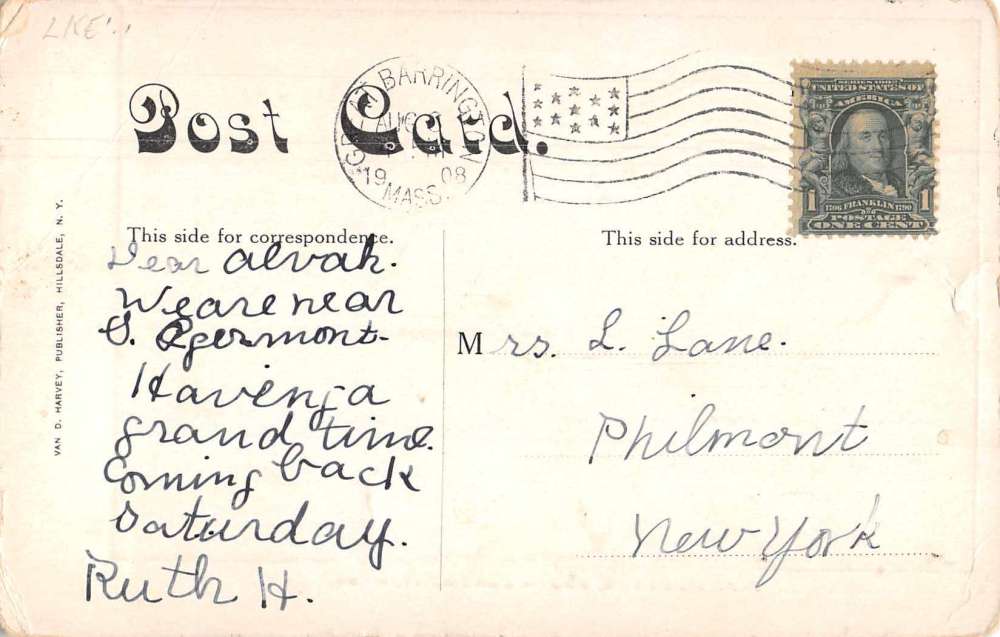 LKE
Post Card.
GREAT BARRINGTON
AUG
19 08
MASS.
SERIES 1902
UNITED STATES OF
AMERICA
1 1
1706 FRANKLIN 1790
POSTAGE
ONE CENT
This side for correspondence.
This side for address.
VAN D. HARVEY, PUBLISHER, HILLSDALE, N. Y.
Dear Alvah.
We are near
S. Egermont-
Haveing a
grand time.
Coming back
Saturday.
Ruth H.
Mrs. L. Lane.
Philmont
New York